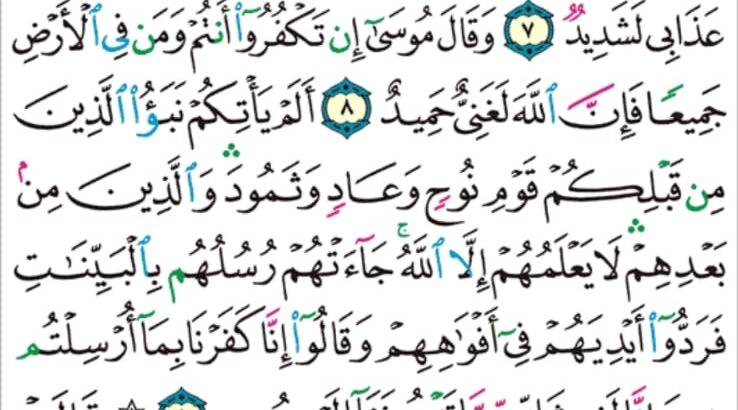 عَذَابِى لَشَدِيدٌ ٧ وَقَالَ مُوسَىٰٓ إِن تَكْفُرُوٓا۟ أَنتُمْ وَمَن فِى ٱلْأَرْضِ
جَمِيعًا فَإِنَّ ٱللَّهَ لَغَنِىٌّ حَمِيدٌ ٨ أَلَمْ يَأْتِكُمْ نَبَؤُا۟ ٱلَّذِينَ
مِن قَبْلِكُمْ قَوْمِ نُوحٍ وَعَادٍ وَثَمُودَ ۛ وَٱلَّذِينَ مِنۢ
بَعْدِهِمْ ۛ لَا يَعْلَمُهُمْ إِلَّا ٱللَّهُ ۚ جَآءَتْهُمْ رُسُلُهُم بِٱلْبَيِّنَـٰتِ
فَرَدُّوٓا۟ أَيْدِيَهُمْ فِىٓ أَفْوَٰهِهِمْ وَقَالُوٓا۟ إِنَّا كَفَرْنَا بِمَآ أُرْسِلْتُم